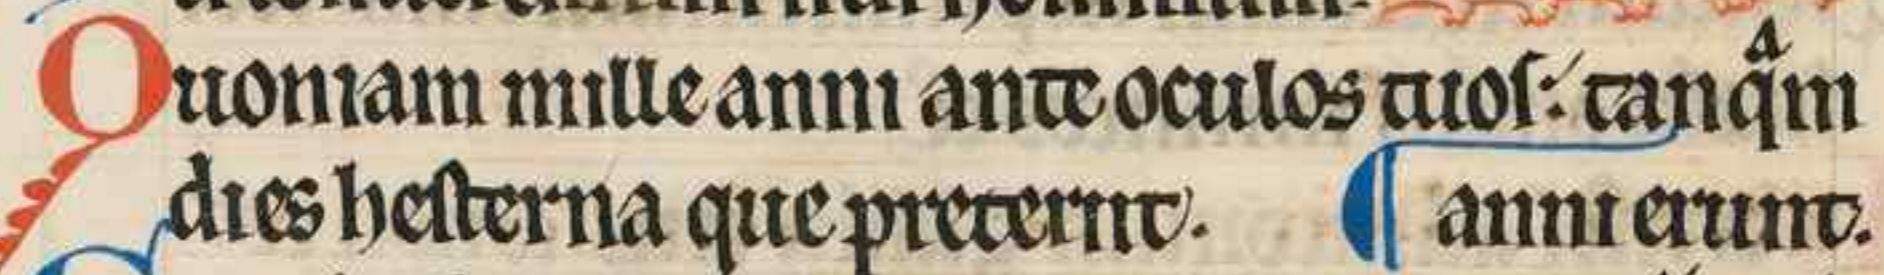 Quoniam mille anni ante oculos tuos: tanqͣm
dies hesterna que preteriit. ¶ anni erunt.